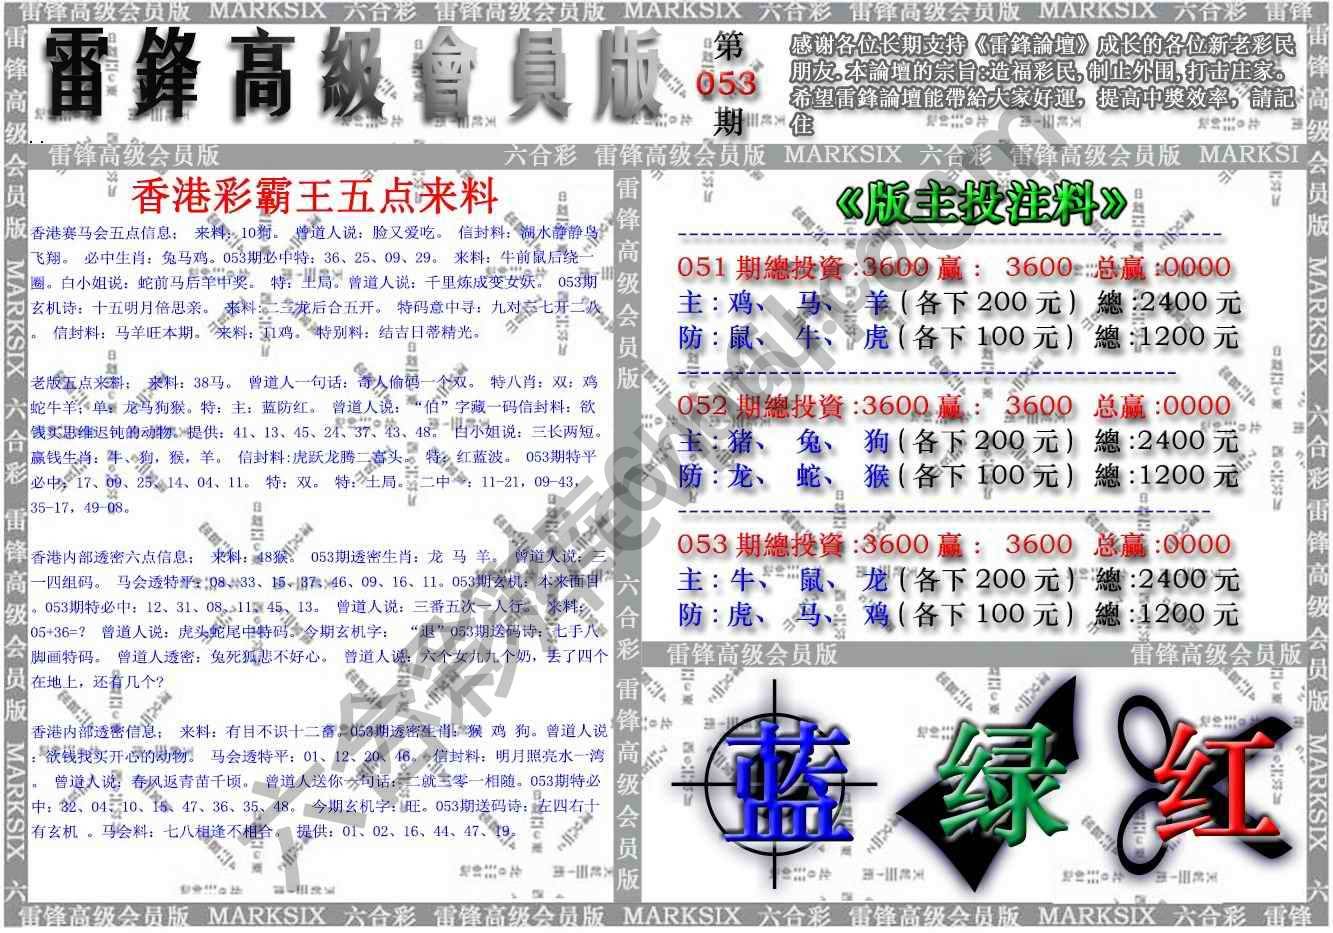 雷锋高级会员版 MARKSIX 六合彩 雷锋高级会员版 MARKSIX 六合彩 雷锋高级会员版 MARKSIX 六合彩 雷锋
雷鋒高級會員版
第
053
期
感谢各位长期支持《雷鋒論壇》成长的各位新老彩民
朋友.本論壇的宗旨:造福彩民,制止外围,打击庄家。
希望雷鋒論壇能帶給大家好運，提高中奬效率，請記
住
雷锋高级会员版 六合彩 雷锋高级会员版 MARKSIX 六合彩 雷锋高级会员版 MARKSI
香港彩霸王五点来料
香港赛马会五点信息； 来料：10狗。 曾道人说：脸又爱吃。 信封料：湖水静静鸟
飞翔。 必中生肖：兔马鸡。053期必中特：36、25、09、29。 来料：牛前鼠后绕一
圈。白小姐说：蛇前马后羊中奖。 特：土局。曾道人说：千里炼成变女妖。 053期
玄机诗：十五明月倍思亲。 来料：二三龙后合五开。 特码意中寻：九对六七开二八
。 信封料：马羊旺本期。 来料：11鸡。 特别料：结吉日蒂精光。
老版五点来料； 来料：38马。 曾道人一句话：奇人偷码一个双。 特八肖：双：鸡
蛇牛羊；单：龙马狗猴。特：主：蓝防红。 曾道人说：“伯”字藏一码信封料：欲
钱买思维迟钝的动物。提供：41、13、45、24、37、43、48。 白小姐说：三长两短。
赢钱生肖：牛、狗，猴，羊。 信封料:虎跃龙腾二富头。 特：红蓝波。 053期特平
必中：17、09、25、14、04、11。 特：双。 特：土局。 二中一：11-21，09-43，
35-17，49-08。
香港内部透密六点信息； 来料：48猴。 053期透密生肖：龙 马 羊。 曾道人说：三
一四组码。 马会透特平：08、33、15、37、46、09、16、11。053期玄机：本来面目
。053期特必中：12、31、08、11、45、13。 曾道人说：三番五次一人行。 来料：
05+36=? 曾道人说：虎头蛇尾中特码。今期玄机字： “退”053期送码诗：七手八
脚画特码。 曾道人透密：兔死狐悲不好心。 曾道人说：六个女九九个奶，丢了四个
在地上，还有几个?
香港内部透密信息； 来料：有目不识十二畜。053期透密生肖：猴 鸡 狗。曾道人说
：欲钱找买开心的动物。 马会透特平：01、12、20、46。 信封料：明月照亮水一湾
。 曾道人说：春风返青苗千顷。 曾道人送你一句话：二就三零一相随。053期特必
中：32、04、10、15、47、36、35、48。 今期玄机字：旺。053期送码诗：左四右十
有玄机 。马会料：七八相逢不相合。 提供：01、02、16、44、47、19。
《版主投注料》
051 期總投資:3600 赢： 3600 总赢:0000
主：鸡、 马、 羊(各下 200 元) 總:2400 元
防：鼠、 牛、 虎(各下 100 元) 總:1200 元
052 期總投資:3600 赢： 3600 总赢:0000
主：猪、 兔、 狗(各下 200 元) 總:2400 元
防：龙、 蛇、 猴(各下 100 元) 總:1200 元
053 期總投資:3600 赢： 3600 总赢:0000
主：牛、 鼠、 龙(各下 200 元) 總:2400 元
防：虎、 马、 鸡(各下 100 元) 總:1200 元
雷锋高级会员版 雷锋高级会员版
蓝 绿 红
雷锋高级会员版 MARKSIX 六合彩 雷锋高级会员版 MARKSIX 六合彩 雷锋高级会员版 MARKSIX 六合彩 雷锋